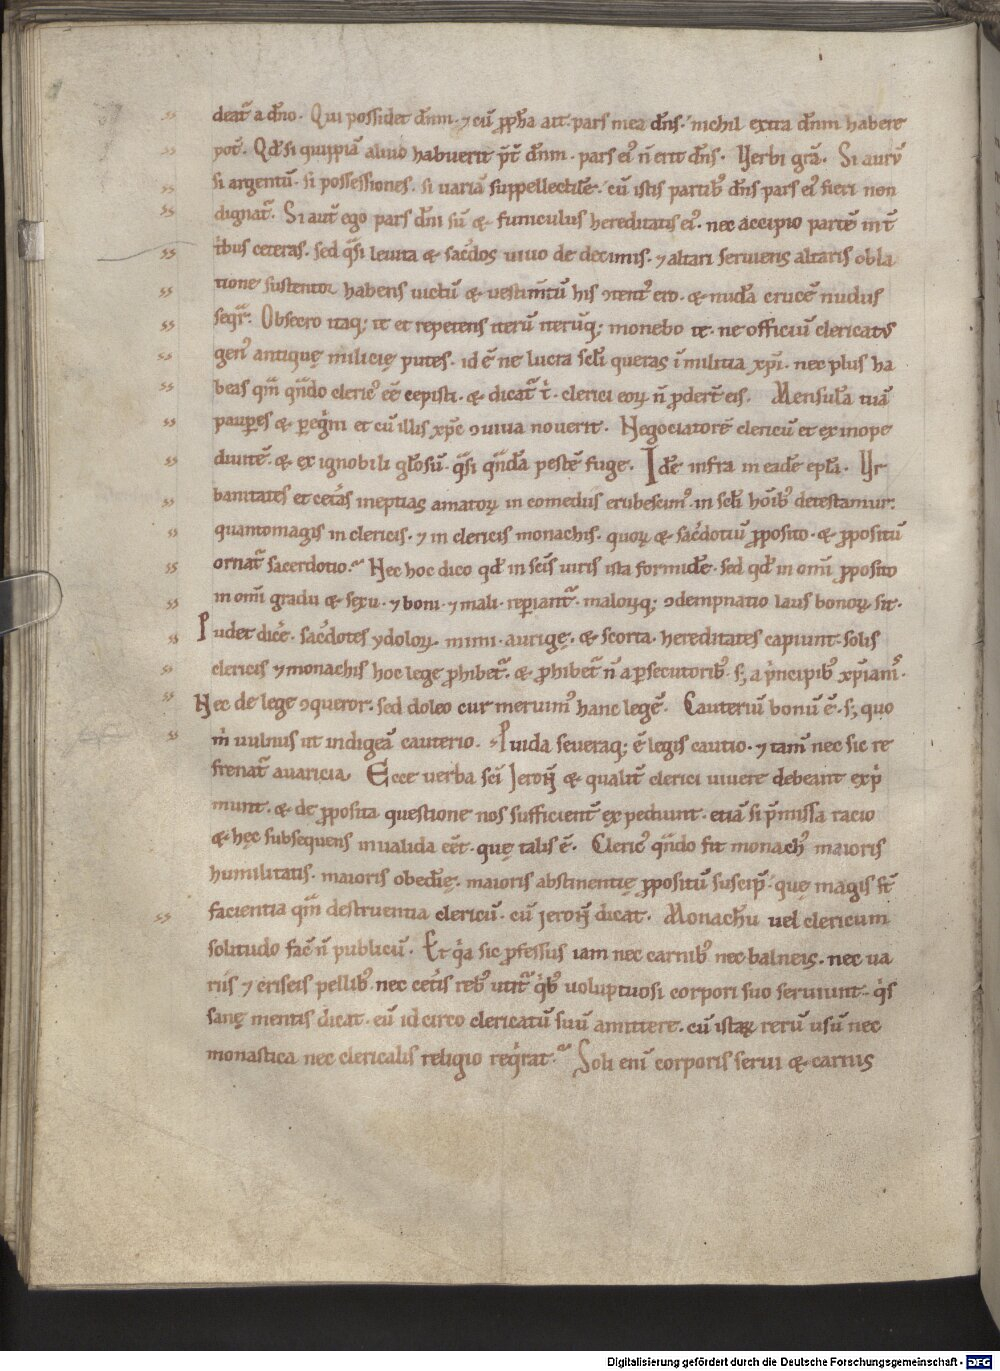 deat̃ a dño. Qui possidet dñm. ⁊ cũ ꝓpħa ait. pars mea dñs. nichil extra dñm habere
pot̃. Qđ si quippiã aliud habuerit p̃t̃ dñm. pars ei᷒ ñ erit dñs. Verbi gr̃a. Si aurũ
si argentũ. si possessiones. si uariã suppellectilẽ. cũ istis partib᷒ dñs pars ei᷒ fieri non
dignat̃. Si aut̃ ego pars dñi sũ & funiculus hereditatis ei᷒. nec accipio partẽ int̃
tribus ceteras. sed q̃si leuita & sac̃dos uiuo de decimis. ⁊ altari seruiens altaris obla
tione sustentor habens uictũ & uestim̃tũ his ↄtent᷒ ero. & nudã crucẽ nudus
seqr̃. Obsecro itaq; te et repetens iterũ iterũq; monebo te. ne officiũ clericat᷒
gen᷒ antiquę milicię putes. id ẽ ne lucra sc̃li queras ĩ militia xp̃i. nec plus ha
beas qm̃ qñdo cleric᷒ eẽ cepisti. & dicat̃ t̃. clerici eoꝝ ñ ꝓder̃t eis. Mensulã tuã
paupes & peg̃ni et cũ illis xp̃c ↄuiua nouerit. Negociatorẽ clericũ et ex inope
diuitẽ. & ex ignobili gl̃osũ. q̃si qñdã pestẽ fuge. Idẽ infra in eadẽ epl̃a. Vr
banitates et cet̃as ineptias amatoꝝ in comediis erubescim᷒. in sc̃li hõib᷒ detestamur.
quantomagis in clericis. ⁊ in clericis monachis. quoꝝ & sac̃dotiũ ꝓposito. & ꝓpositũ
ornat̃ sacerdotio. Nec hoc dico qđ in sc̃is uiris ista formidẽ. sed qđ in om̃i ꝓposito
in om̃i gradu & sexu. ⁊ boni. ⁊ mali. repiant̃. maloꝝq; ↄdempnatio laus bonoꝝ sit.
Pudet dic̃e. sac̃dotes ydoloꝝ. mimi. aurigę. & scorta. hereditates capiunt. solis
clericis ⁊ monachis hoc lege ꝓhibet̃. & ꝓhibet̃ ñ a psecutorib᷒. s; a p̃ncipib᷒ xp̃ianis.
Nec de lege ↄqueror. sed doleo cur meruim᷒ hanc legẽ. Cauteriũ bonũ ẽ. s; quo
m̃ uulnus ut indigeã cauterio. Puida seueraq; ẽ legis cautio. ⁊ tam̃ nec sic re
frenat̃ auaricia. Ecce uerba sc̃i Ieroñ & qualit̃ clerici uiuere debeant exp̃
munt. & de ꝓposita questione nos sufficient̃ expediunt. etiã si p̃missa racio
& hęc subsequens inualida eẽt. quę talis ẽ. Cleric᷒ qñdo fit monach᷒ maioris
humilitatis. maioris obed̃ię. maioris abstinentię ꝓpositũ suscip̃. quę magis st̃
facientia qm̃ destruentia clericũ. cũ ieroñ dicat. Monachũ uel clericum
solitudo fac̃ ñ publicũ. Et q̃a sic ꝓfessus iam nec carnib᷒ nec balneis. nec ua
riis ⁊ criseis pellib᷒. nec cet̃is reb᷒ utit̃ q̃b᷒ uoluptuosi corpori suo seruiunt. q̃s
sanę mentis dicat. eũ idcirco clericatũ suũ amittere. cũ istaꝝ rerũ usũ nec
monastica nec clericalis religio req̃rat. Soli eni᷒ corporis serui & carnis
Digitalisierung gefördert durch die Deutsche Forschungsgemeinschaft - DFG